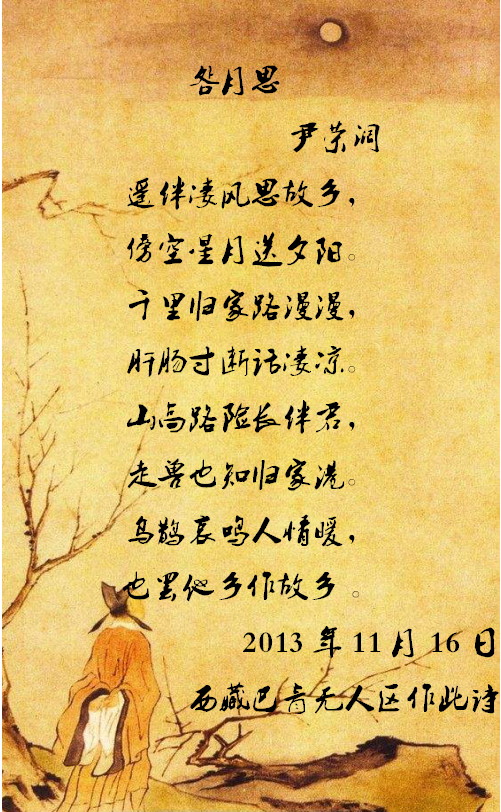 咎月思
尹荣润
遥伴凄风思故乡，
傍空星月送夕阳。
千里归家路漫漫，
肝肠寸断话凄凉。
山高路险长伴君，
走兽也知归家港。
乌鹊哀鸣人情暖，
也罢他乡作故乡 。
2013 年 11 月 16 日
西藏巴青无人区作此诗